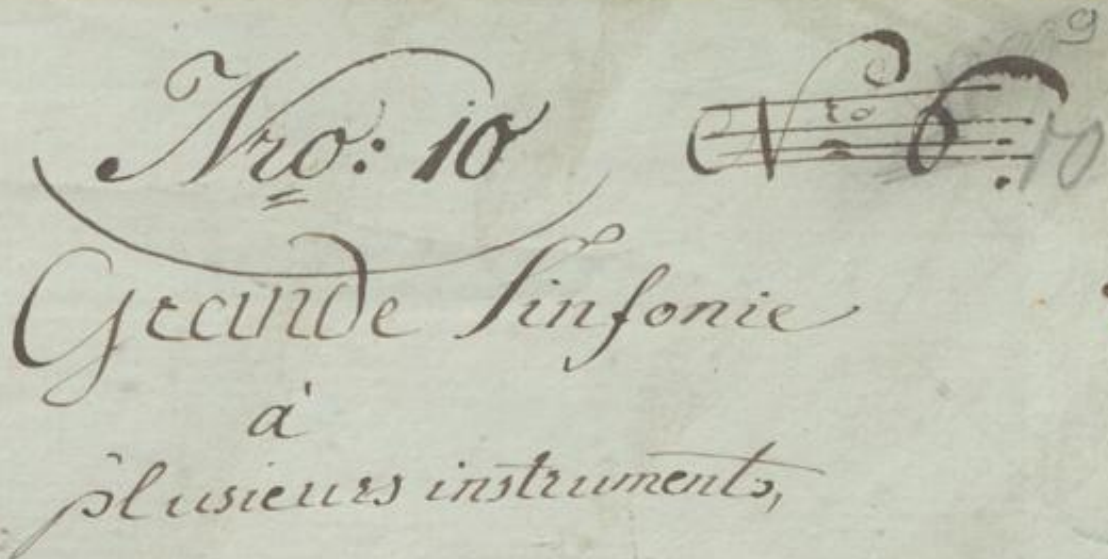 Nro: 10
Nro 6.
9
10
Grande Sinfonie
à
plusieurs instruments,